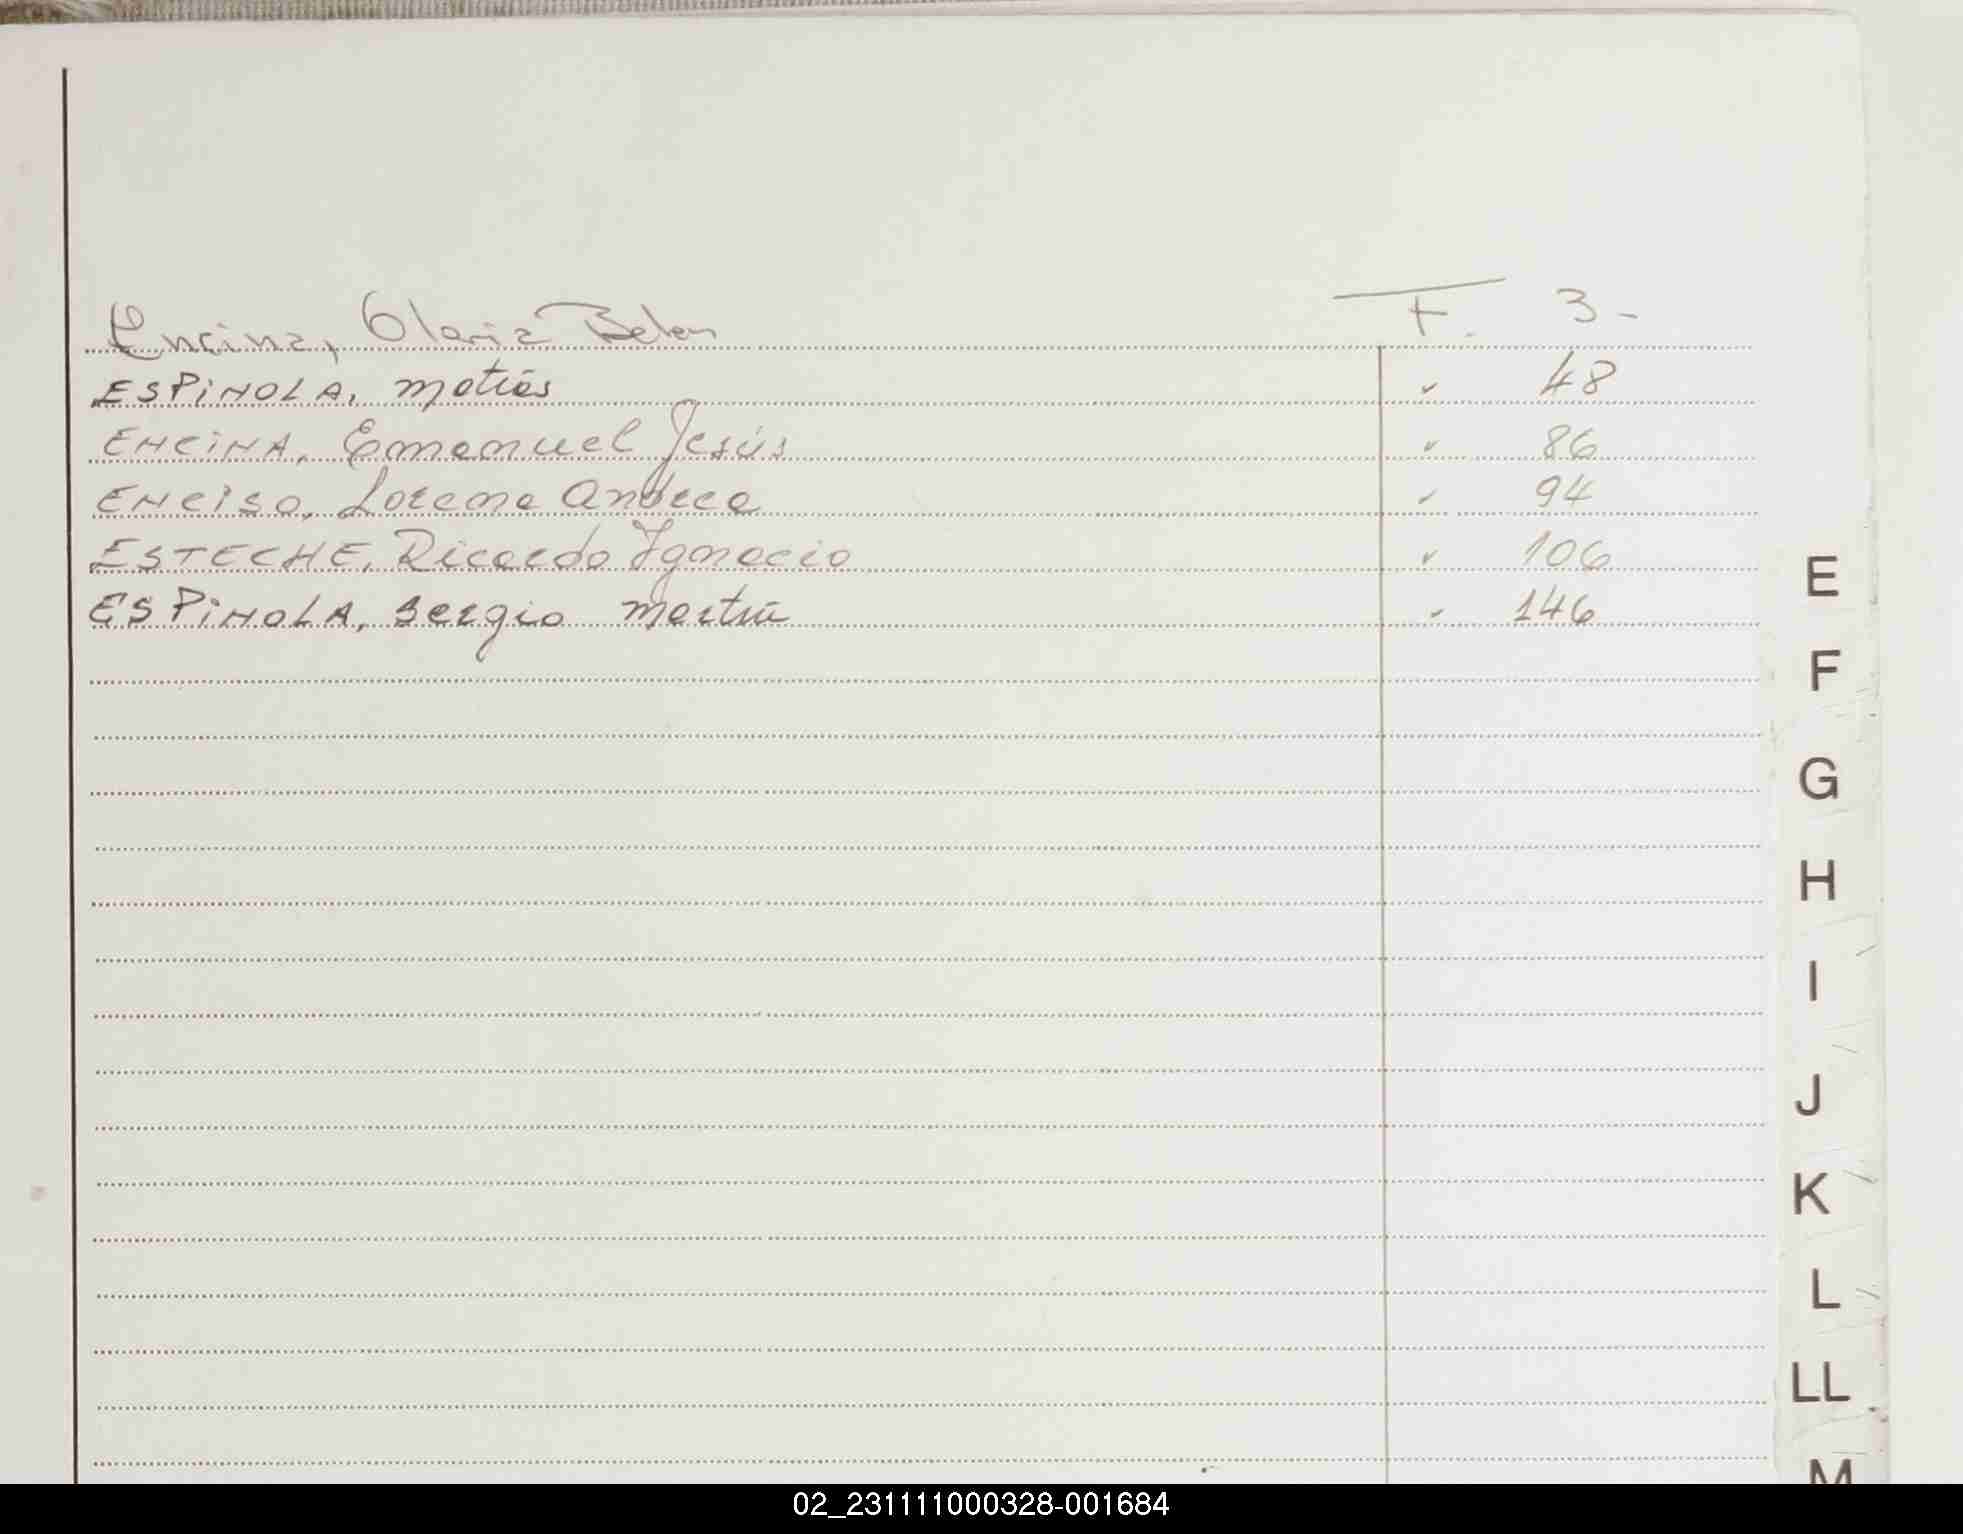 Encina, Gloria Belen F. 3-
ESPINOLA, Matías " 48
ENCINA, Emanuel Jesús " 86
ENCISO, Lorena Andrea " 94
ESTECHE, Ricardo Ignacio " 106
ESPINOLA, Sergio Martín " 146
E
F
G
H
I
J
K
L
LL
M
02_231111000328-001684